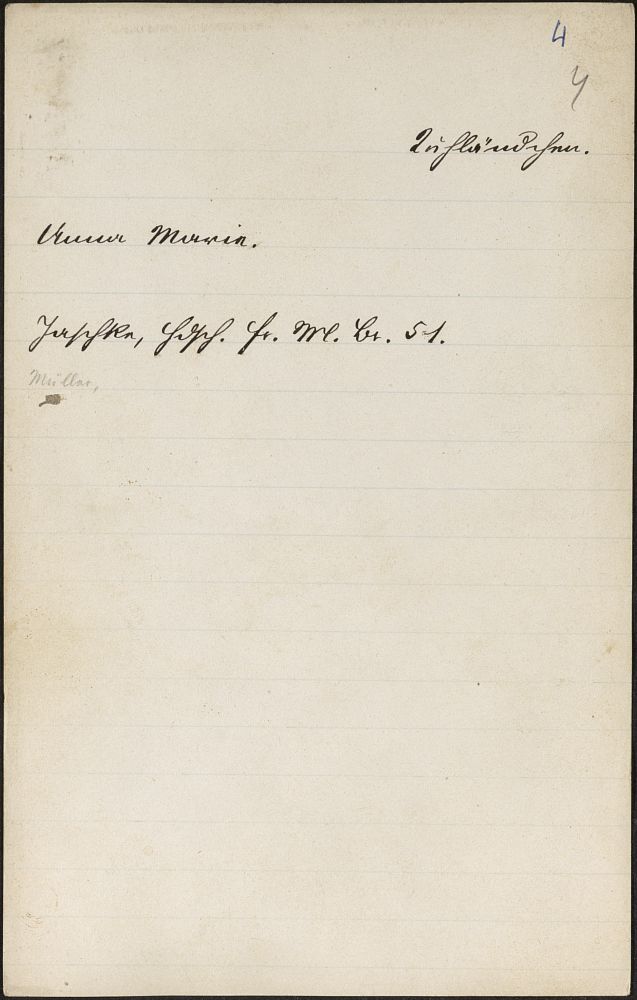 4
4
Kuhländchen.
Anna Marie.
Jaschke, Hdsch. fr. M. Br. 51.
Müller,